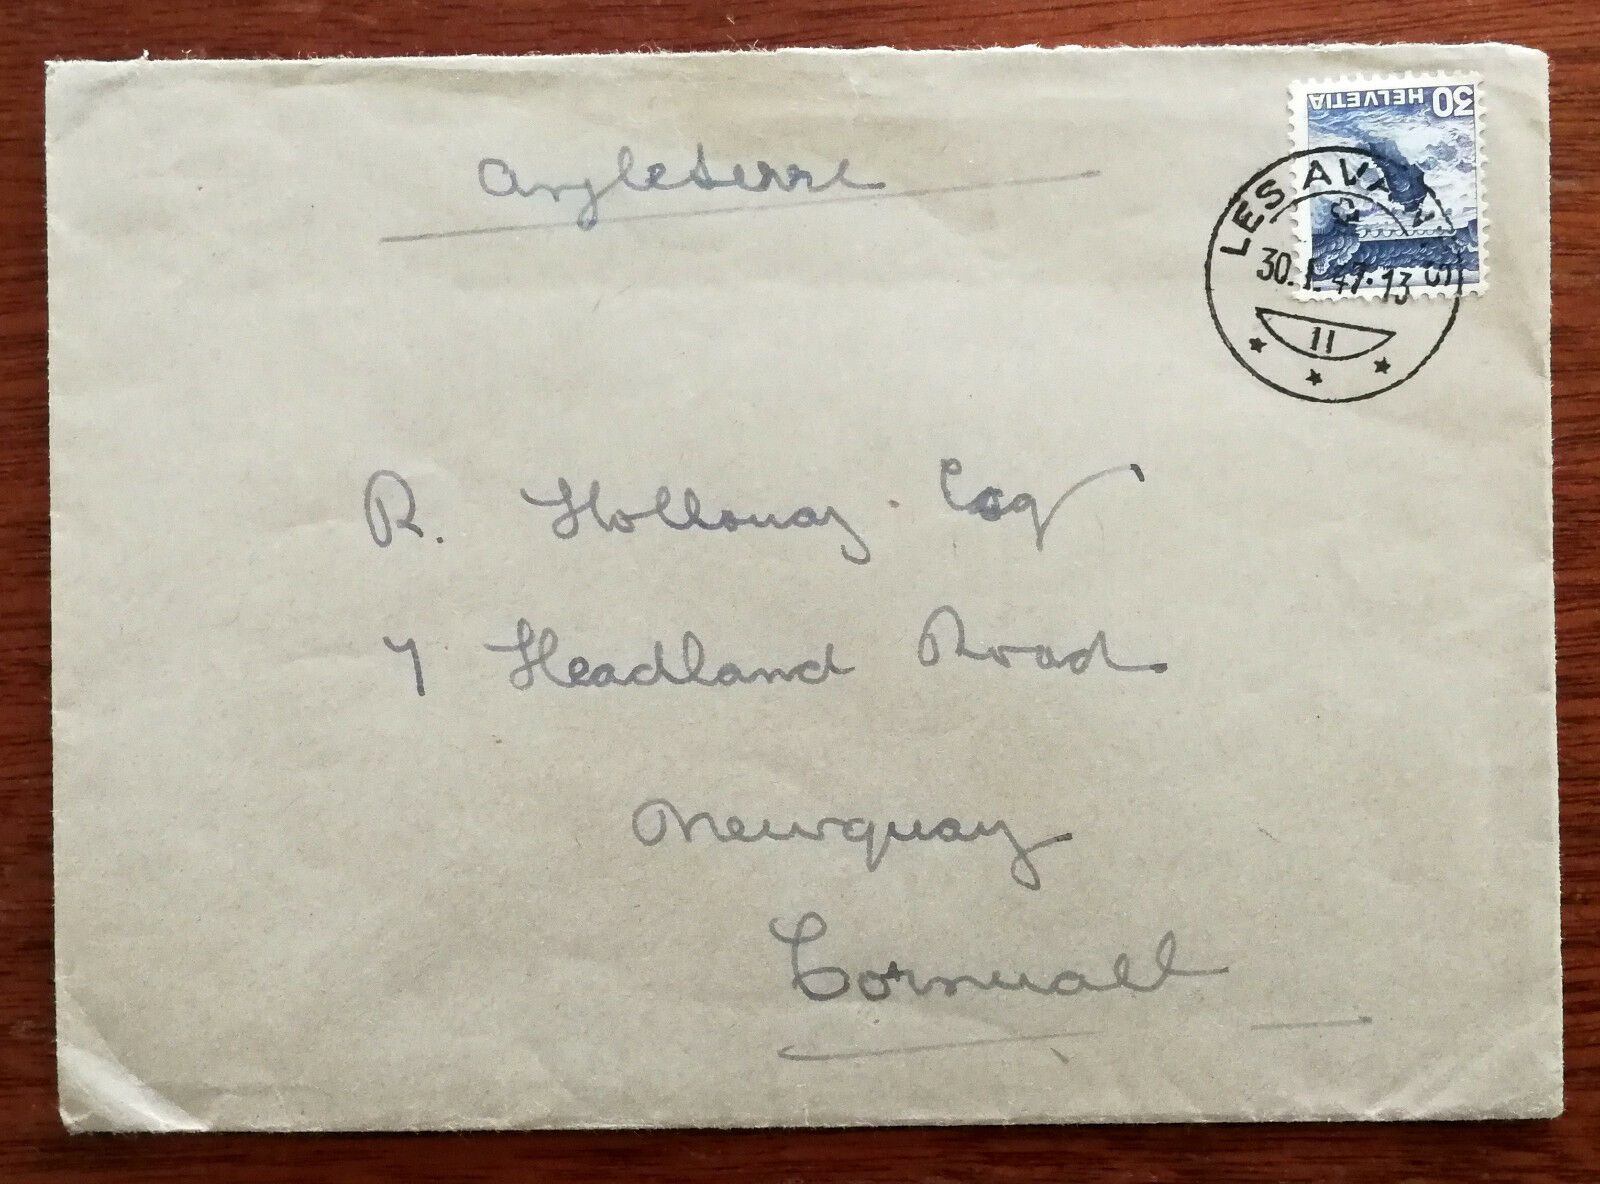 Angleterre
30 HELVETIA
LES AVA
30. I. 47. 13
II
R. Holloway. Esq
7 Headland Road.
Newquay
Cornwall